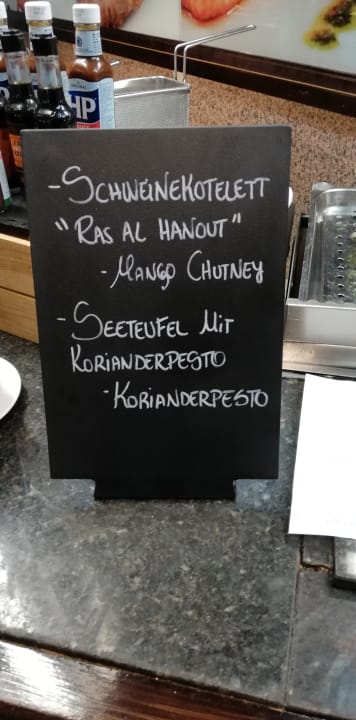 HP
- SCHWEINEKOTELETT
"RAS AL HANOUT"
- MANGO CHUTNEY
- SEETEUFEL MIT
KORIANDERPESTO
- KORIANDERPESTO